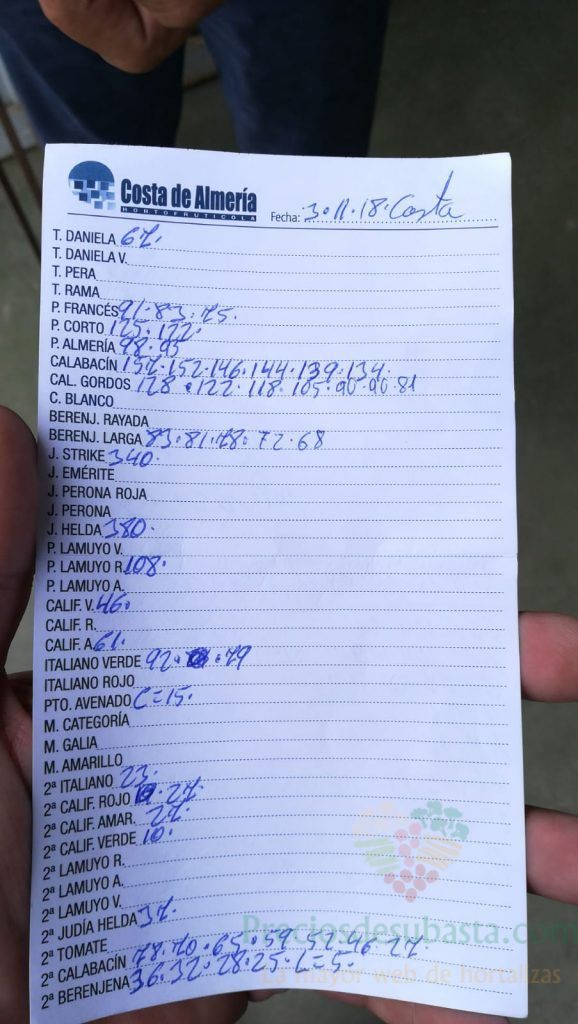 Costa de Almería
HORTOFRUTICOLA
Fecha: 3·11·18·Costa
T. DANIELA 67·
T. DANIELA V.
T. PERA
T. RAMA
P. FRANCÉS 91·83·75·
P. CORTO 125·122·
P. ALMERÍA 98·95
CALABACÍN 157·152·146·144·139·134·
CAL. GORDOS 128·122·118·105·90·90·81
C. BLANCO
BERENJ. RAYADA
BERENJ. LARGA 83·81·78·72·68
J. STRIKE 340·
J. EMÉRITE
J. PERONA ROJA
J. PERONA
J. HELDA 380·
P. LAMUYO V.
P. LAMUYO R. 108·
P. LAMUYO A.
CALIF. V. 46·
CALIF. R.
CALIF. A. 61·
ITALIANO VERDE 92·79
ITALIANO ROJO
PTO. AVENADO C=15·
M. CATEGORÍA
M. GALIA
M. AMARILLO
2ª ITALIANO 23·
2ª CALIF. ROJO 27·
2ª CALIF. AMAR. 27·
2ª CALIF. VERDE 10·
2ª LAMUYO R.
2ª LAMUYO A.
2ª LAMUYO V.
2ª JUDÍA HELDA 37·
2ª TOMATE
2ª CALABACÍN 78·70·65·59·52·46·27·
2ª BERENJENA 36·32·28·25·L=5·
Preciosdesubasta.com
La mayor web de hortalizas